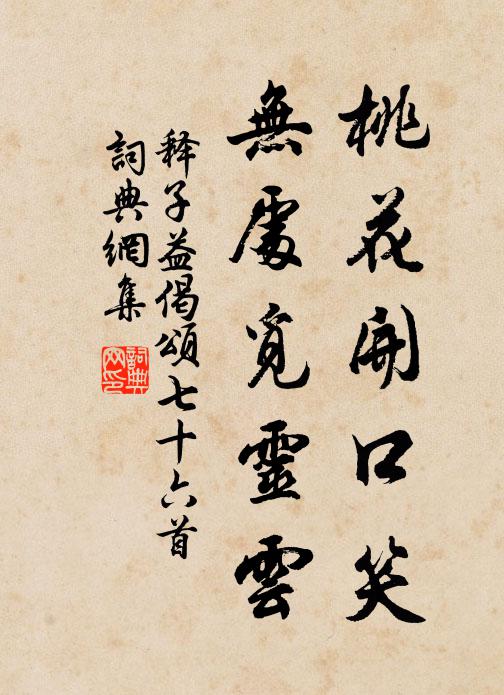 桃花開口笑
無處覓靈雲
释子益偈頌七十六首
詞典網集
詞典網印